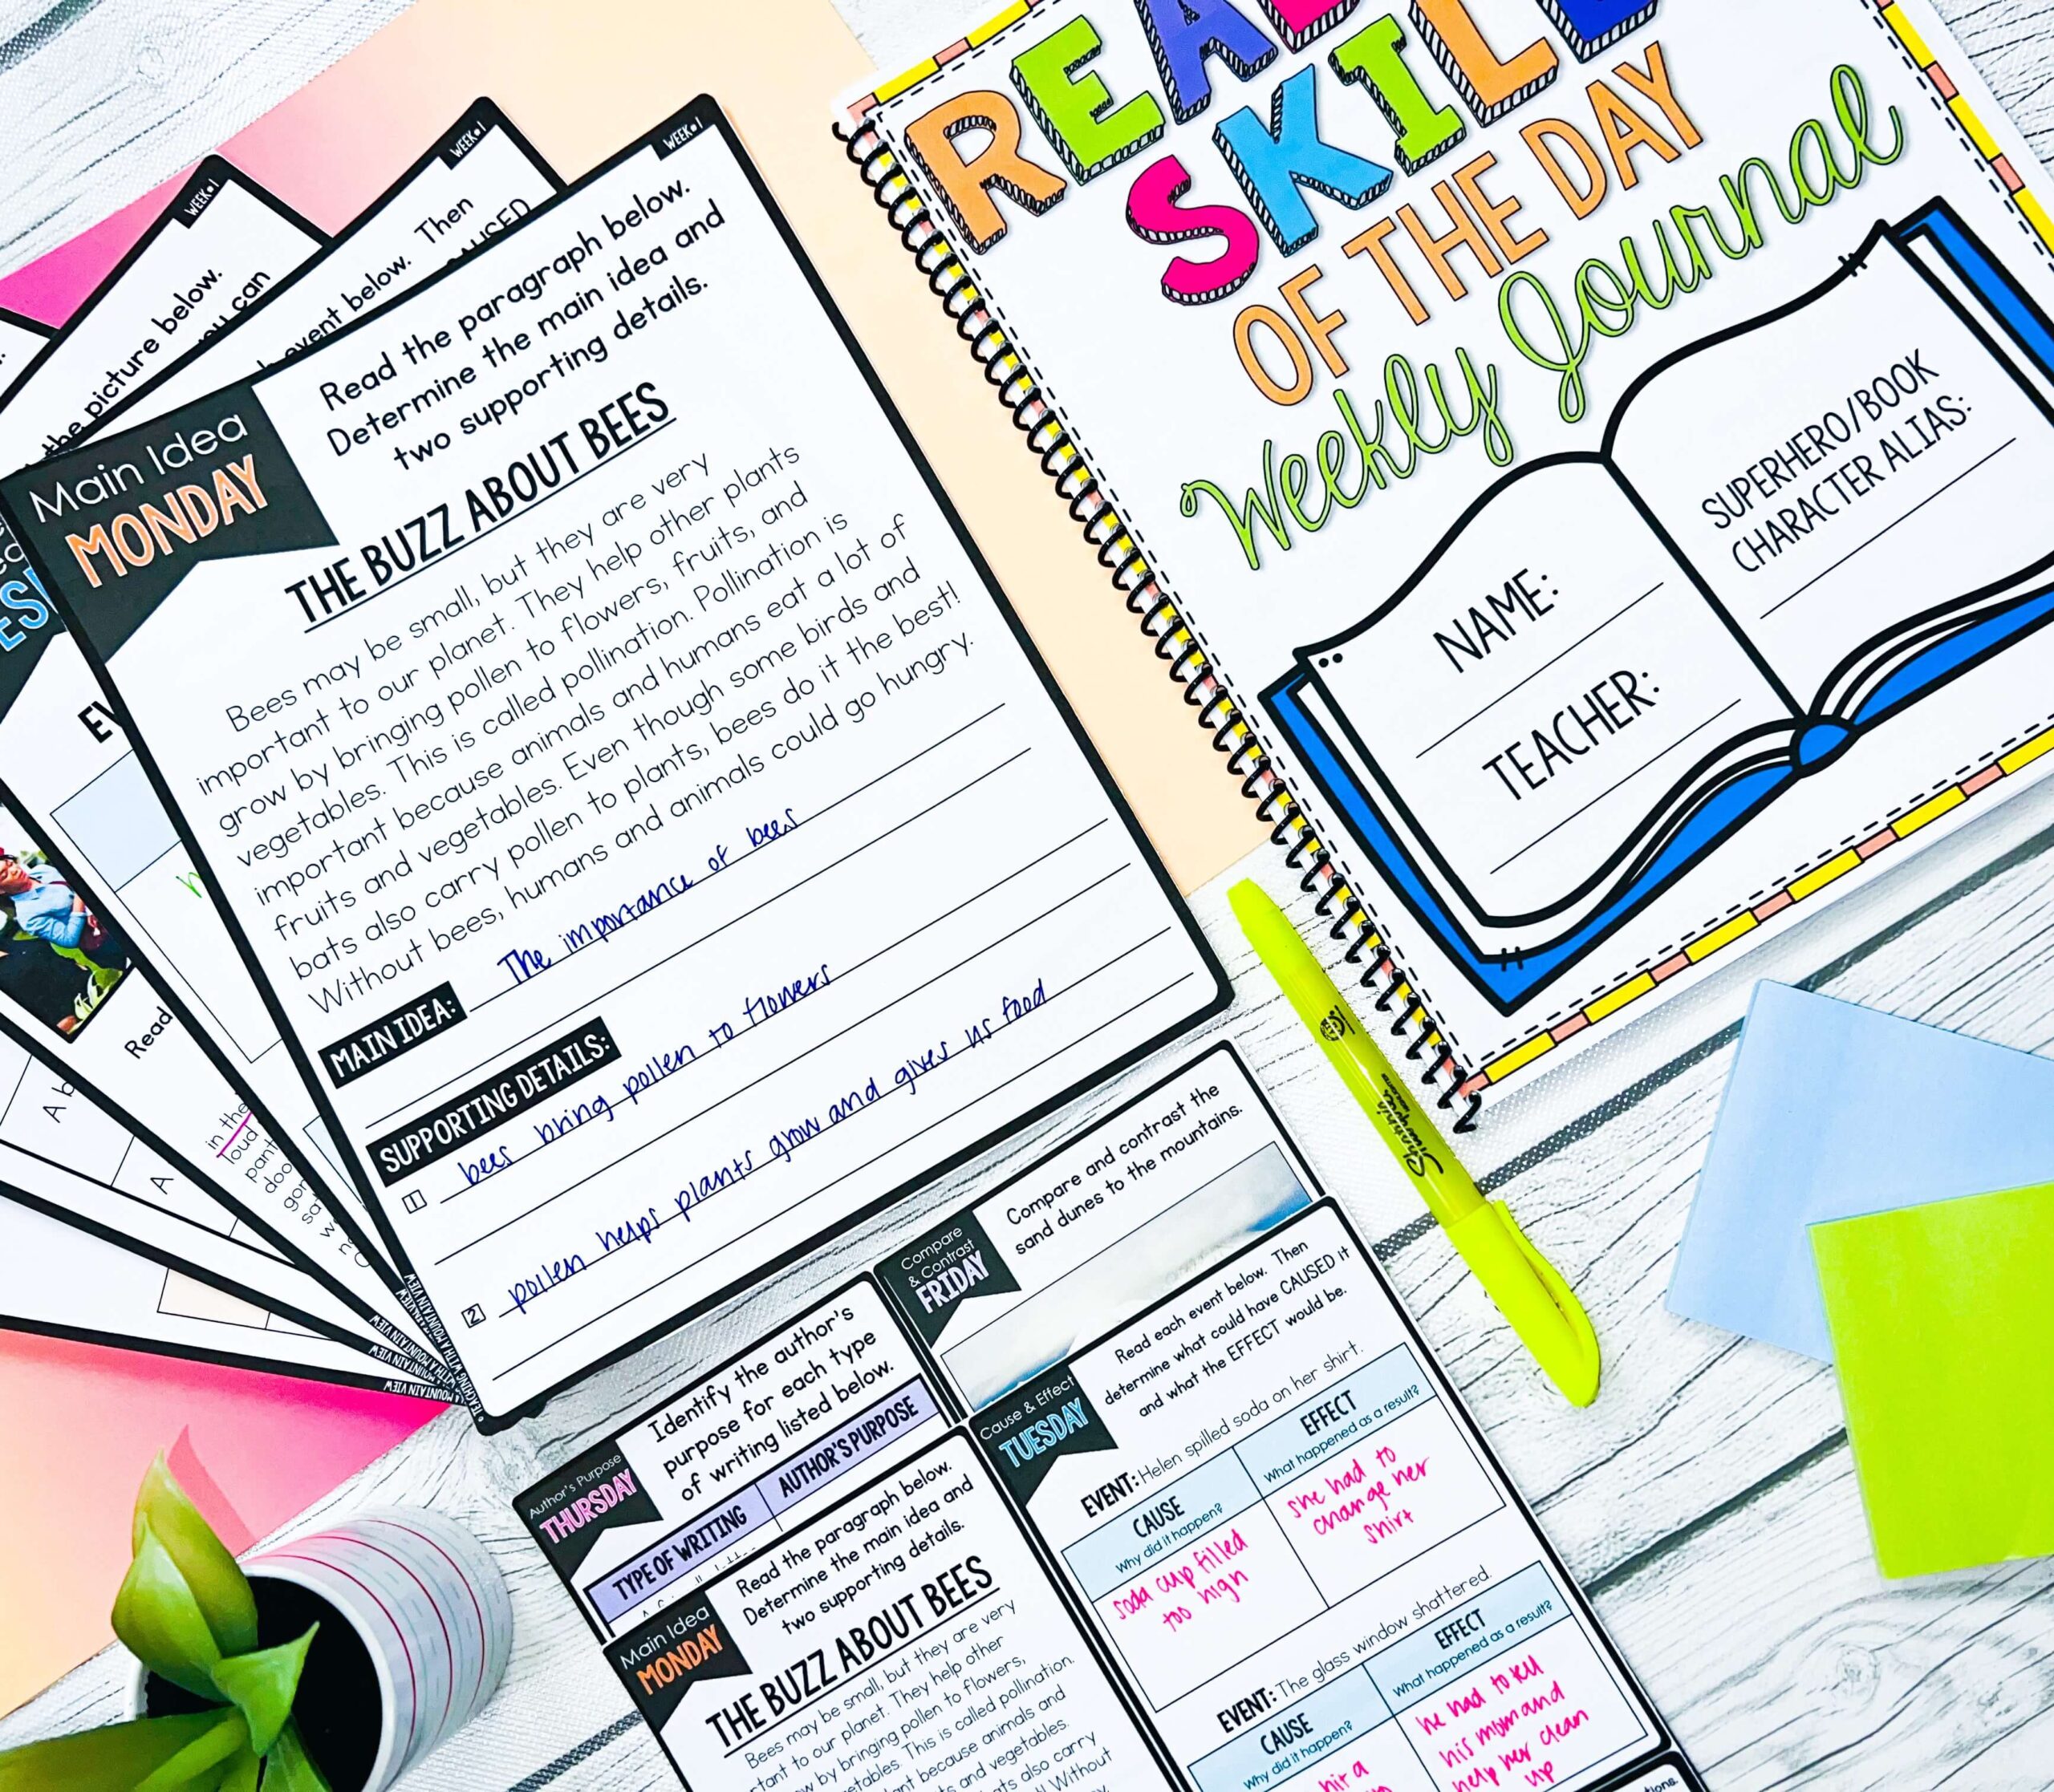 WEEK 1
the picture below.
you can
WEEK 1
event below. Then
CAUSED
WEEK 1
Main Idea
MONDAY
Read the paragraph below.
Determine the main idea and
two supporting details.
THE BUZZ ABOUT BEES
Bees may be small, but they are very
important to our planet. They help other plants
grow by bringing pollen to flowers, fruits, and
vegetables. This is called pollination. Pollination is
important because animals and humans eat a lot of
fruits and vegetables. Even though some birds and
bats also carry pollen to plants, bees do it the best!
Without bees, humans and animals could go hungry.
MAIN IDEA: The importance of bees
SUPPORTING DETAILS:
1 bees bring pollen to flowers
2 pollen helps plants grow and gives us food
Read
A b
A
in the
loud
MOUNTAIN VIEW
READ
SKILL
OF THE DAY
Weekly Journal
NAME:
TEACHER:
SUPERHERO/BOOK
CHARACTER ALIAS:
Sharpie
Compare
& Contrast
FRIDAY
Compare and contrast the
sand dunes to the mountains.
Author's Purpose
THURSDAY
Identify the author's
purpose for each type
of writing listed below.
TYPE OF WRITING AUTHOR'S PURPOSE
Cause & Effect
TUESDAY
Read each event below. Then
determine what could have CAUSED it
and what the EFFECT would be.
EVENT: Helen spilled soda on her shirt.
CAUSE
Why did it happen?
EFFECT
What happened as a result?
soda cup filled
too high
she had to
change her
shirt
EVENT: The glass window shattered.
CAUSE
Why did it happen?
EFFECT
What happened as a result?
hit a
he had to tell
his mom and
help her clean
up
Main Idea
MONDAY
Read the paragraph below.
Determine the main idea and
two supporting details.
THE BUZZ ABOUT BEES
Bees may be small, but they are very
to our planet. They help other
by bringing pollen to flowers,
This is called pollination.
because animals and
and vegetables.
also carry
Without